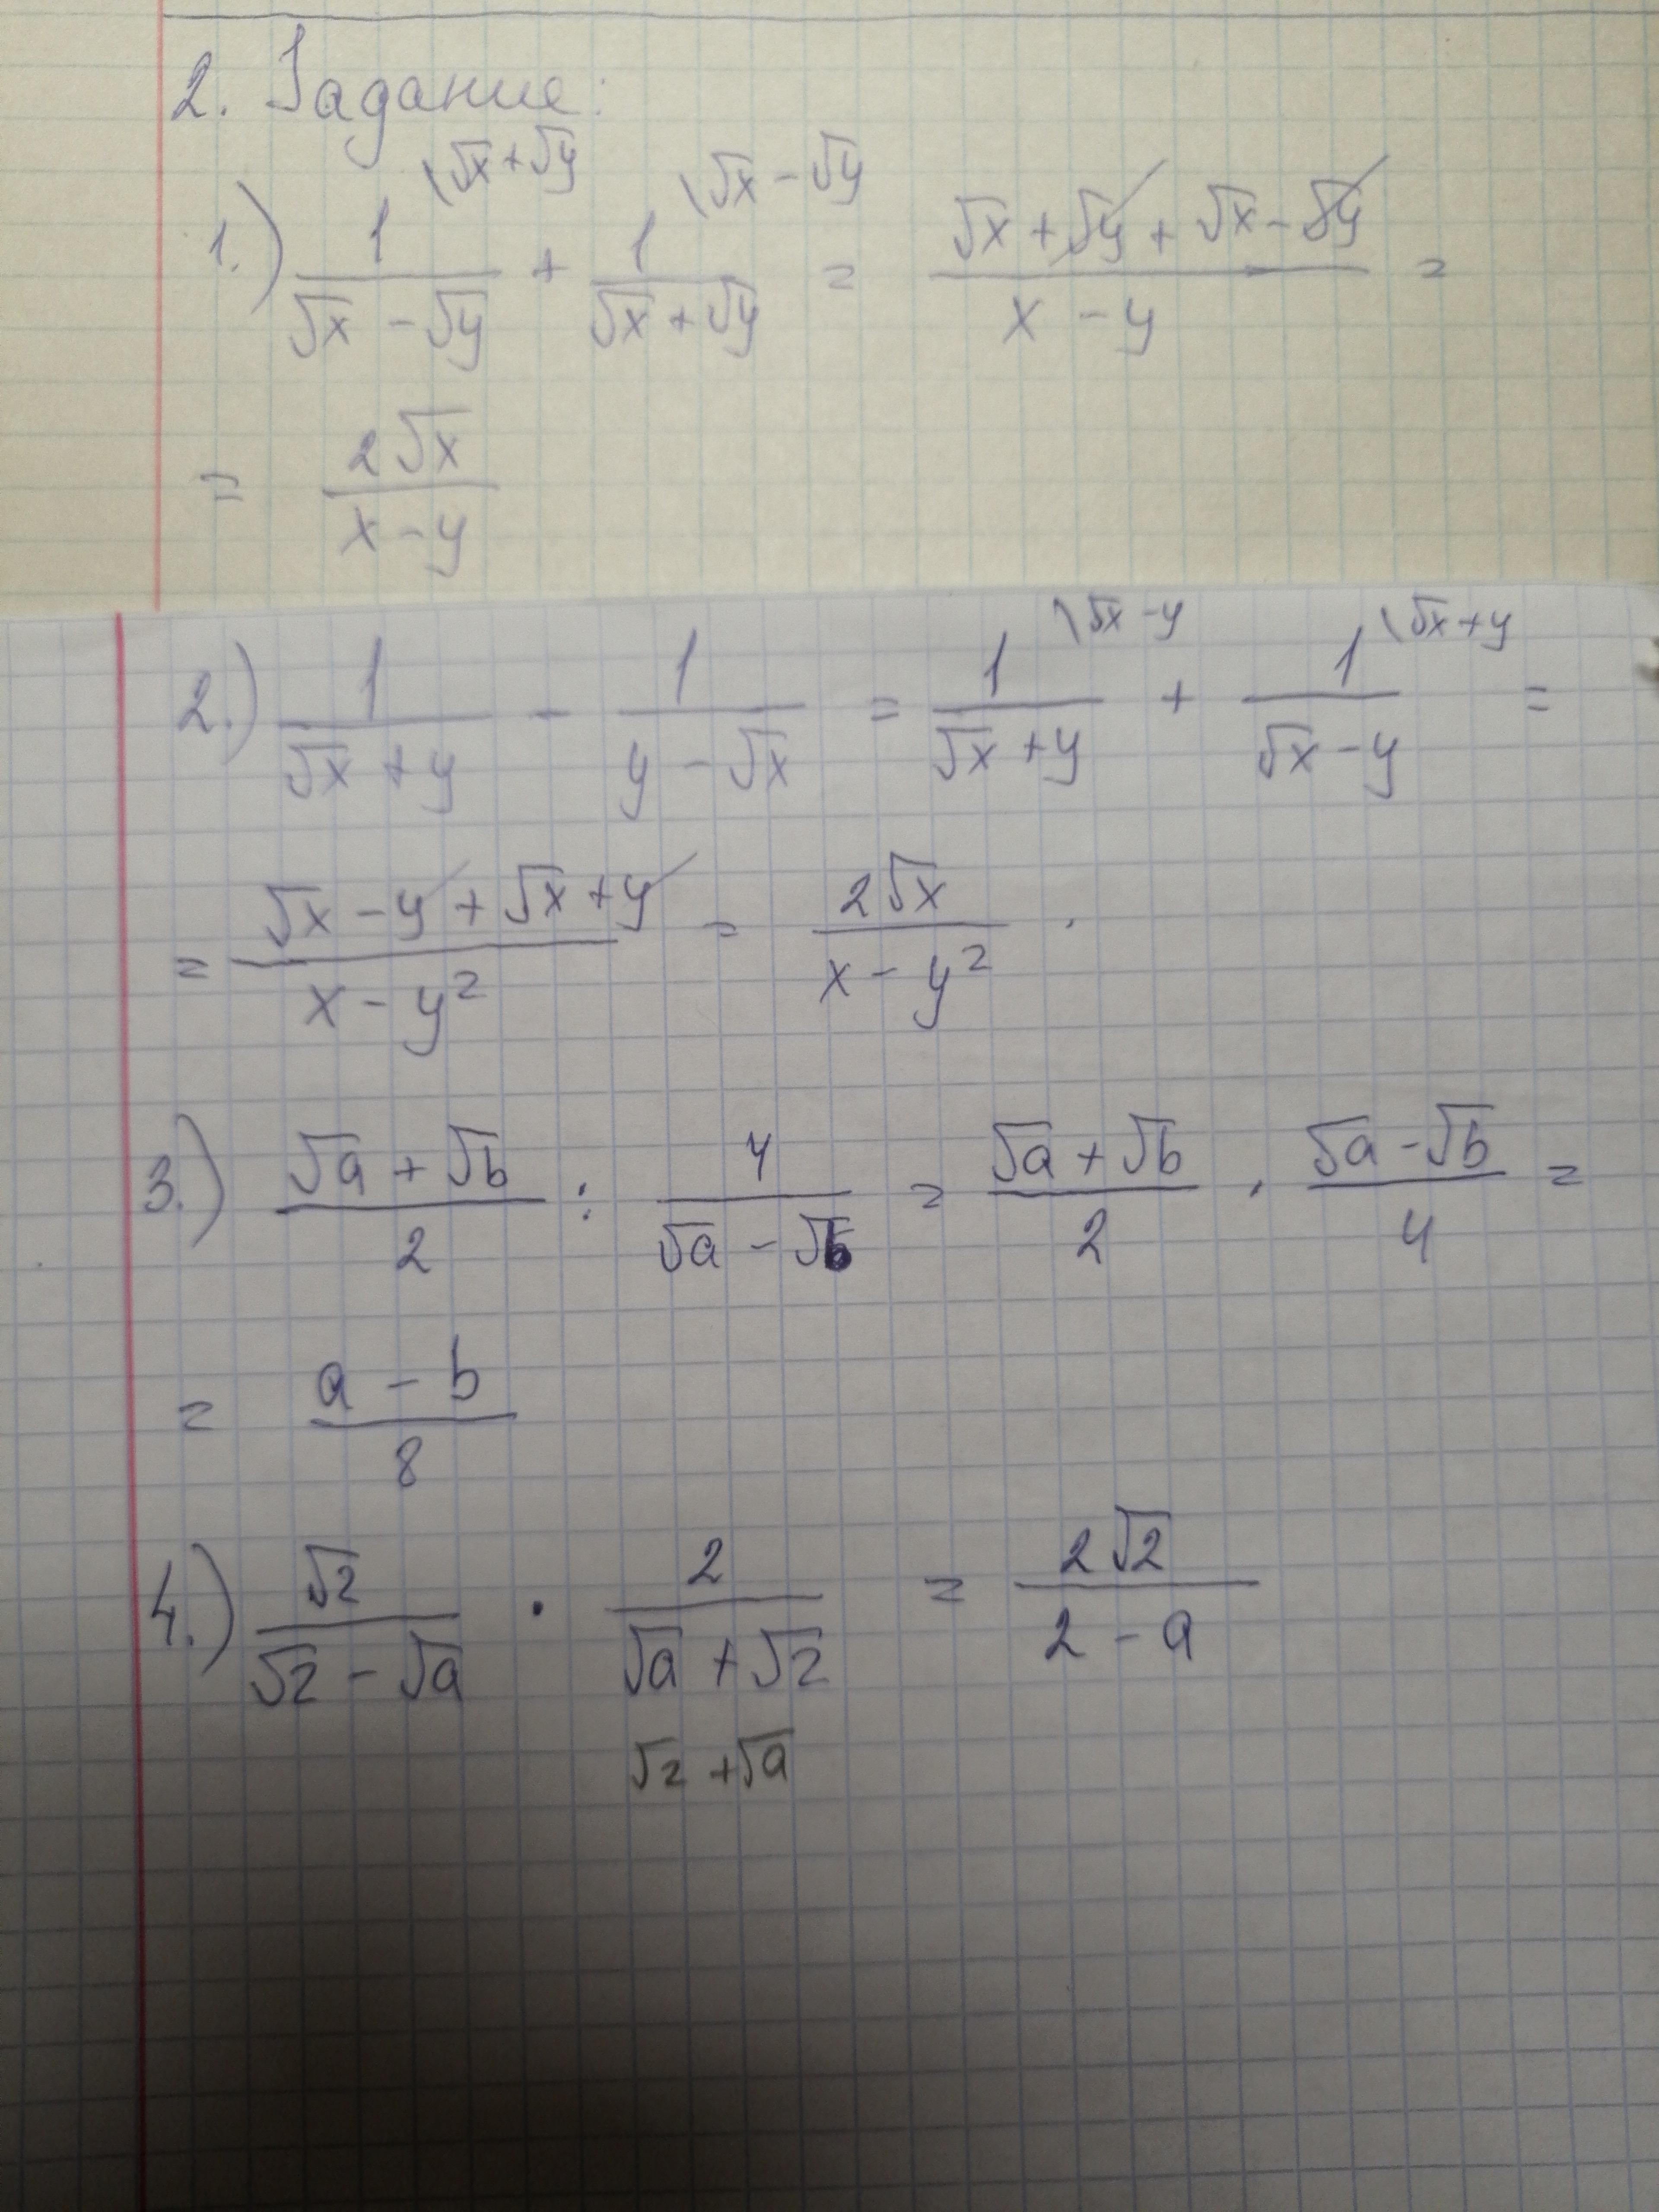 2. Задание:
\√x+√y \√x-√y
1.) 1/(√x-√y) + 1/(√x+√y) = (√x+√y+√x-√y)/(x-y) =
= 2√x/(x-y)
\√x-y \√x+y
2.) 1/(√x+y) - 1/(y-√x) = 1/(√x+y) + 1/(√x-y) =
= (√x-y+√x+y)/(x-y²) = 2√x/(x-y²) .
3.) (√a+√b)/2 : 4/(√a-√b) = (√a+√b)/2 · (√a-√b)/4 =
= (a-b)/8
4.) √2/(√2-√a) · 2/(√a+√2) = 2√2/(2-a)
√2+√a